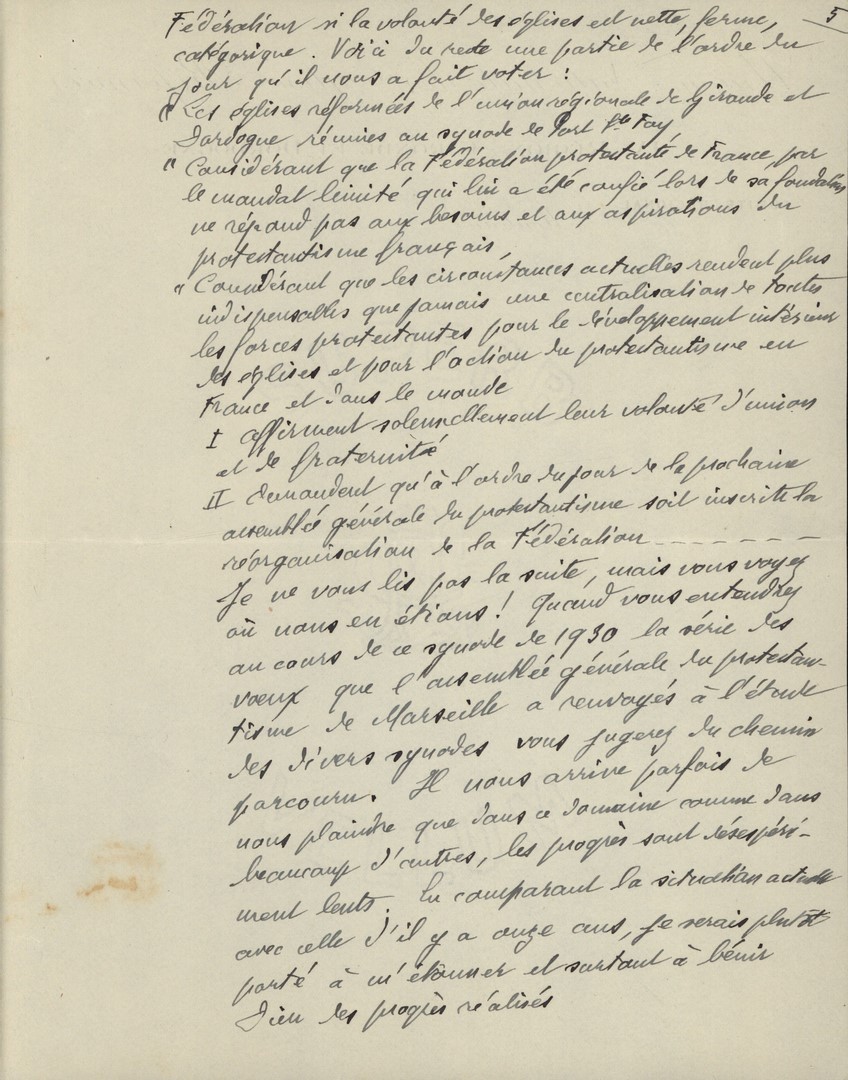 5
Fédération si la volonté des églises est nette, ferme,
catégorique. Voici du reste une partie de l'ordre du
jour qu'il nous a fait voter :
" Les églises réformées de l'union régionale de Gironde et
Dordogne réunies au synode de Port Ste Foy
" Considérant que la Fédération protestante de France par
le mandat limité qui lui a été confié lors de sa fondation
ne répond pas aux besoins et aux aspirations du
protestantisme français,
" Considérant que les circonstances actuelles rendent plus
indispensables que jamais une centralisation de toutes
les forces protestantes pour le développement intérieur
des églises et pour l'action du protestantisme en
France et dans le monde
I affirment solennellement leur volonté d'union
et de fraternité
II Demandent qu'à l'ordre du jour de la prochaine
assemblée générale du protestantisme soit inscrite la
réorganisation de la Fédération - - - - - - -
Je ne vous lis pas la suite, mais vous voyez
où nous en étions ! Quand vous entendrez
au cours de ce synode de 1930 la série des
voeux que l'assemblée générale du protestan-
tisme de Marseille a renvoyés à l'étude
des divers synodes vous jugerez du chemin
parcouru. Il nous arrive parfois de
nous plaindre que dans ce domaine comme dans
beaucoup d'autres, les progrès sont désespéré-
ment lents. En comparant la situation actuelle
avec celle d'il y a onze ans, je serais plutôt
porté à m'étonner et surtout à bénir
Dieu des progrès réalisés